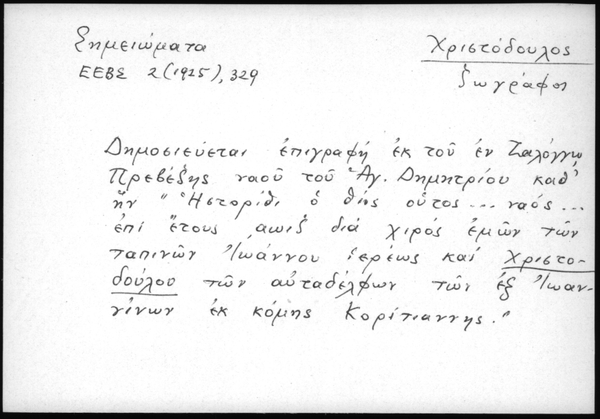 Σημειώματα
ΕΕΒΣ 2 (1925), 329
Χριστόδουλος
ζωγράφοι
Δημοσιεύεται ἐπιγραφή ἐκ τοῦ ἐν Ζαλόγγῳ
Πρεβέζης ναοῦ τοῦ Ἁγ. Δημητρίου καθ'
ἥν "Ἡστορίθι ὁ θῖος οὗτος ... ναός ...
ἐπί ἔτους διά χιρός ἐμῶν τῶν
ταπινῶν Ἰωάννου ἱερέως καί Χριστο-
δούλου τῶν αὐταδέλφων τῶν ἐξ Ἰωαν-
νίνων ἐκ κόμης Κορίτιαννης."